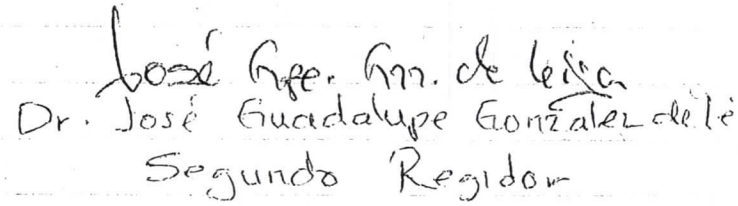 José Gpe. Gzz. de León
Dr. José Guadalupe Gonzalez de lé
Segundo Regidor